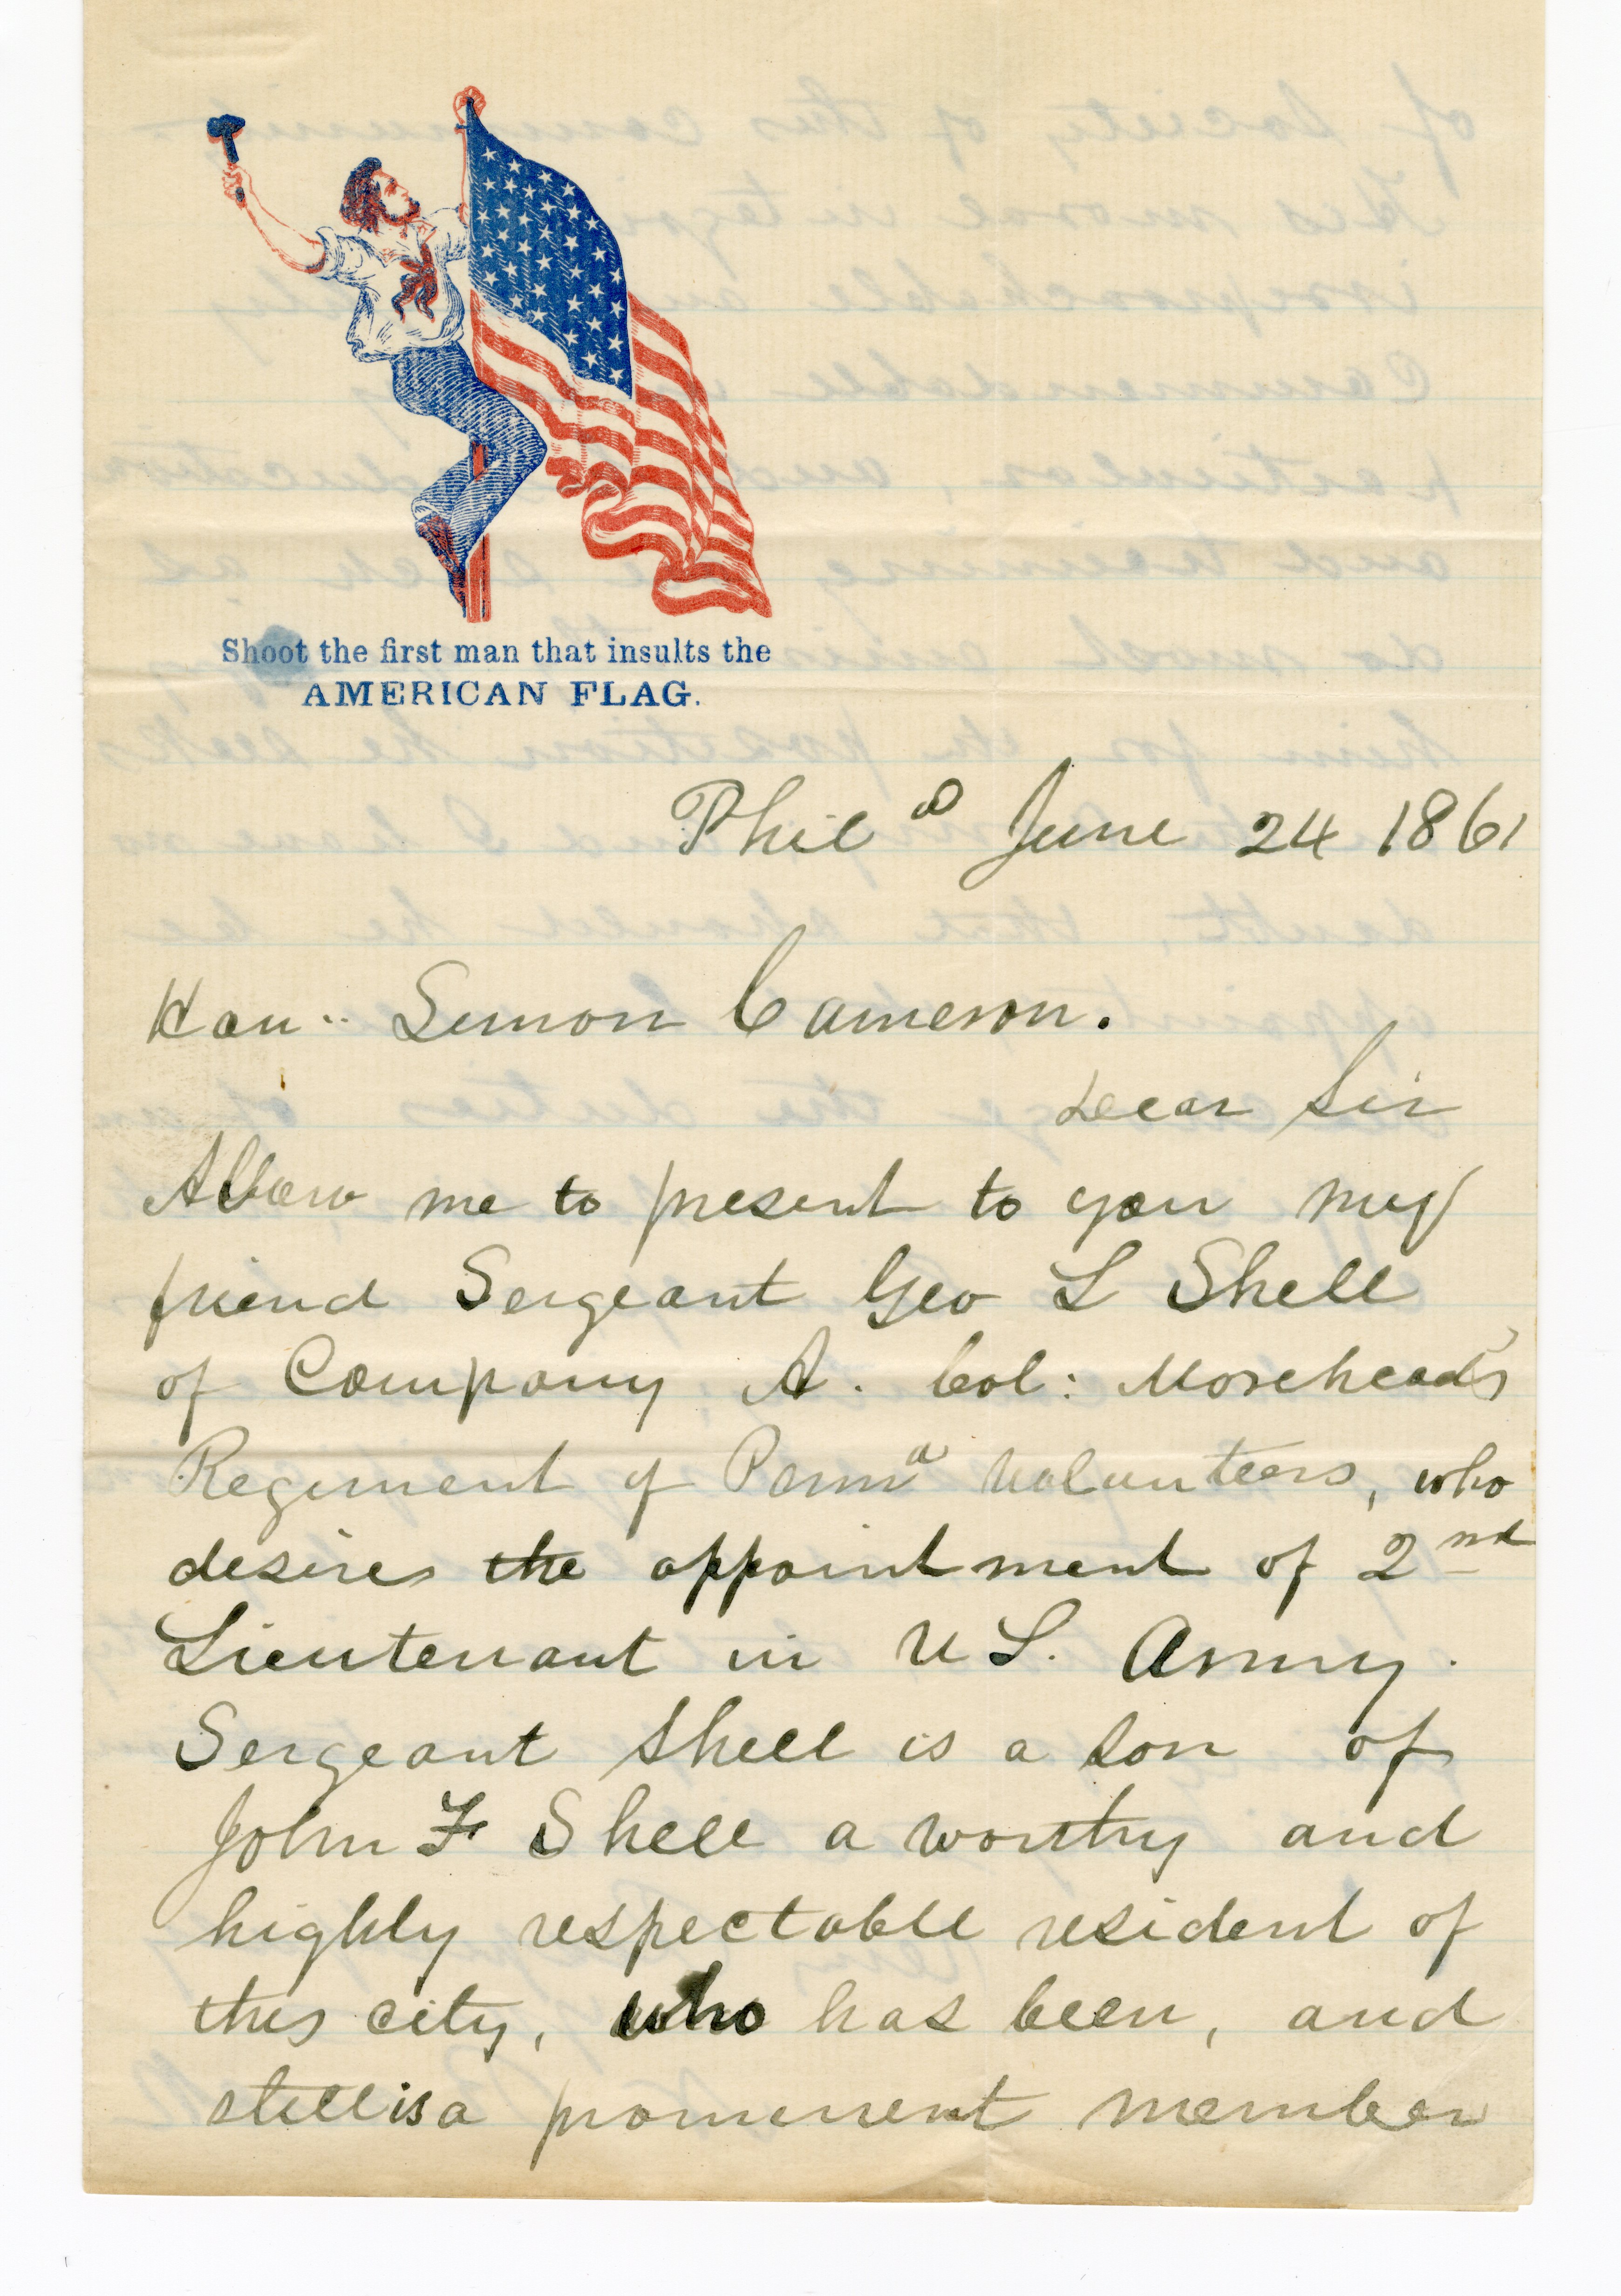 Shoot the first man that insults the
AMERICAN FLAG.
Phil a June 24 1861
Hon.. Simon Cameron.
Dear Sir
Allow me to present to you my
friend Sergeant Geo L Shell
of Company A. Col: Morehead's
Regiment of Penna Volunteers, who
desires the appointment of 2nd
Lieutenant in U S. Army.
Sergeant Shell is a son of
John F Shell a worthy and
highly respectable resident of
this city, who has been, and
still is a prominent member